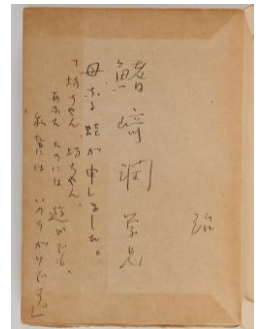 鰭﨑潤学兄
治
母なる蛙が申しました。
「坊ちやん、坊ちやん、
あなたたちには 遊びでも、
私たちには いのちがけです。」